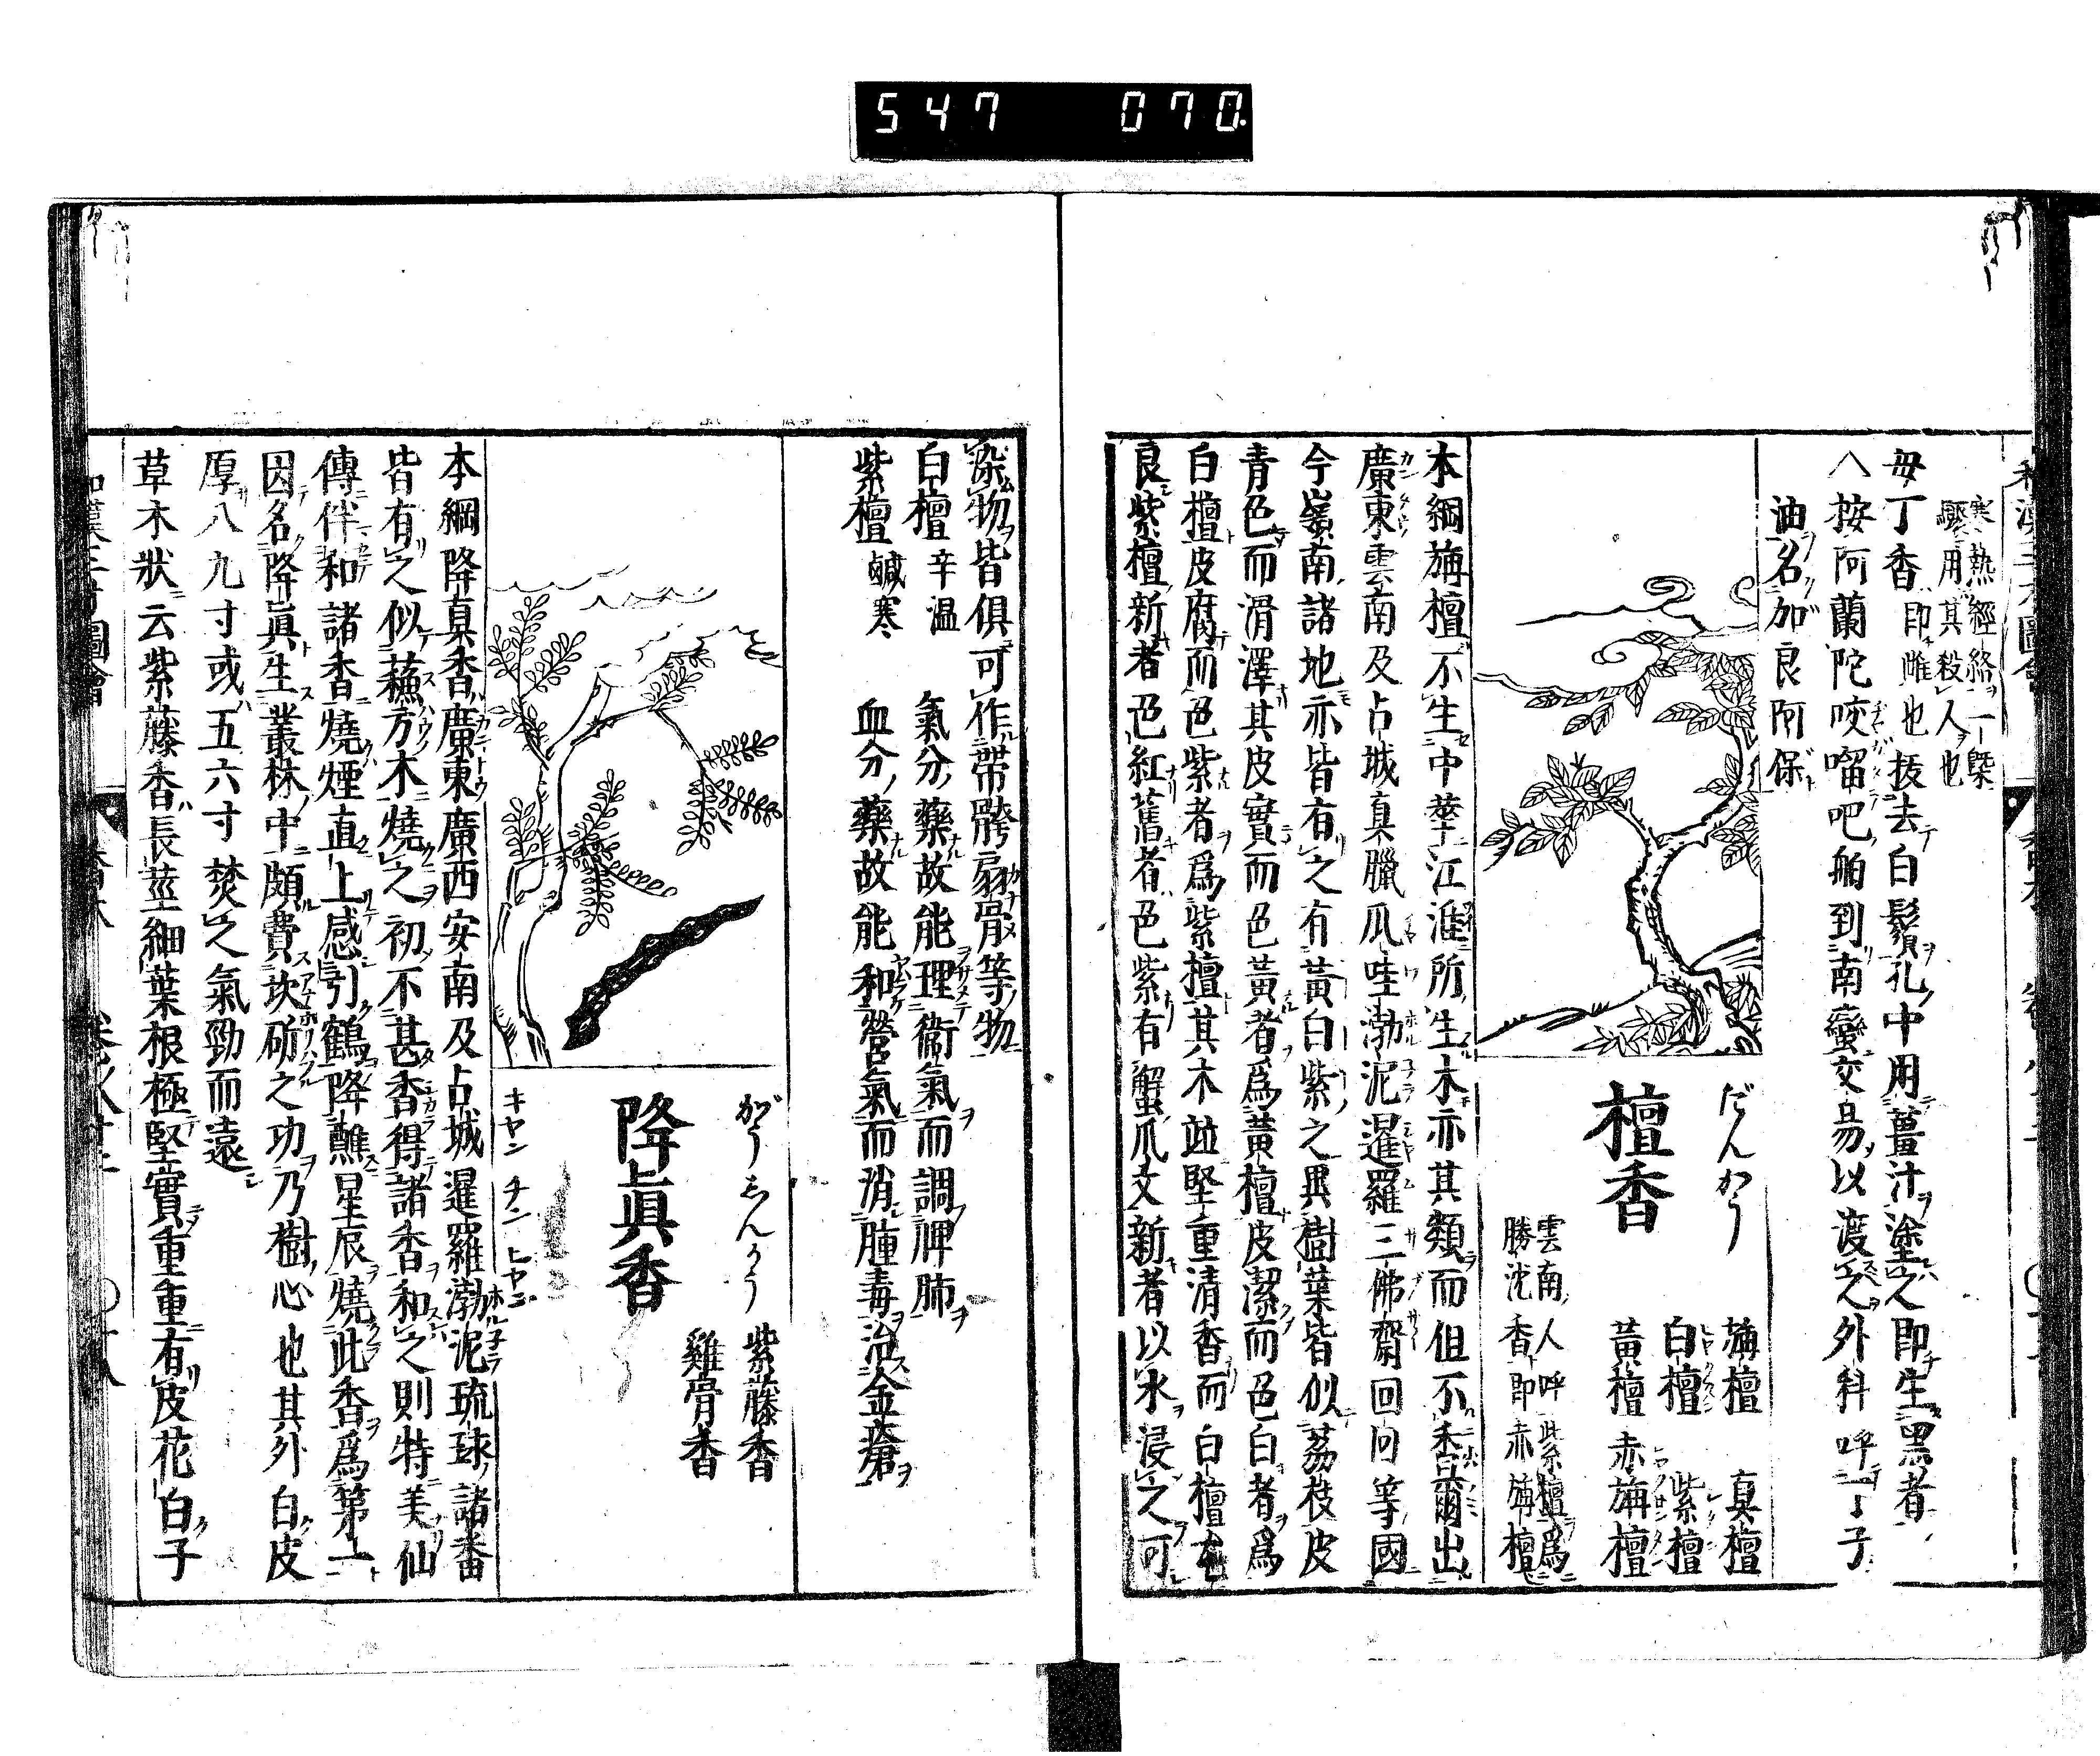 547 070
寒熱經絡一槩
驟用其殺人也
母丁香 即雌也 拔去白鬚孔中用薑汁塗之即生黒者
△按阿蘭陀咬𠺕吧舶到南蠻交易以渡之外科呼丁子
油名加良阿保
だんかう
檀香
旃檀 真檀
白檀 紫檀
黃檀 赤旃檀
雲南人呼紫檀爲
勝沈香即赤旃檀
本綱旃檀不生中華江淮所生木亦其類而但不香爾出
廣東雲南及占城真臘爪哇渤泥暹羅三佛齋回回等國
今嶺南諸地亦皆有之有黃白紫之異樹葉皆似茘枝皮
青色而滑澤其皮實而色黃者爲黃檀皮潔而色白者爲
白檀皮腐而色紫者爲紫檀其木並堅重清香而白檀尤
良紫檀新者色紅舊者色紫有蟹爪文新者以水浸之可
染物皆俱可作帶胯扇骨等物
白檀 辛温 氣分藥故能理衞氣而調脾肺
紫檀 鹹寒 血分藥故能和營氣而消腫毒治金瘡
がうしんかう
降眞香
紫藤香
雞骨香
キヤン チン ヒヤン
本綱降真香廣東廣西安南及占城暹羅渤泥琉球諸番
皆有之似蘓方木燒之初不甚香得諸香和之則特美仙
傳伴和諸香燒煙直上感引鶴降醮星辰燒此香爲第一
因名降眞生叢林中頗費坎斫之功乃樹心也其外白皮
厚八九寸或五六寸焚之氣勁而遠
草木狀云紫藤香長莖細葉根極堅實重重有皮花白子